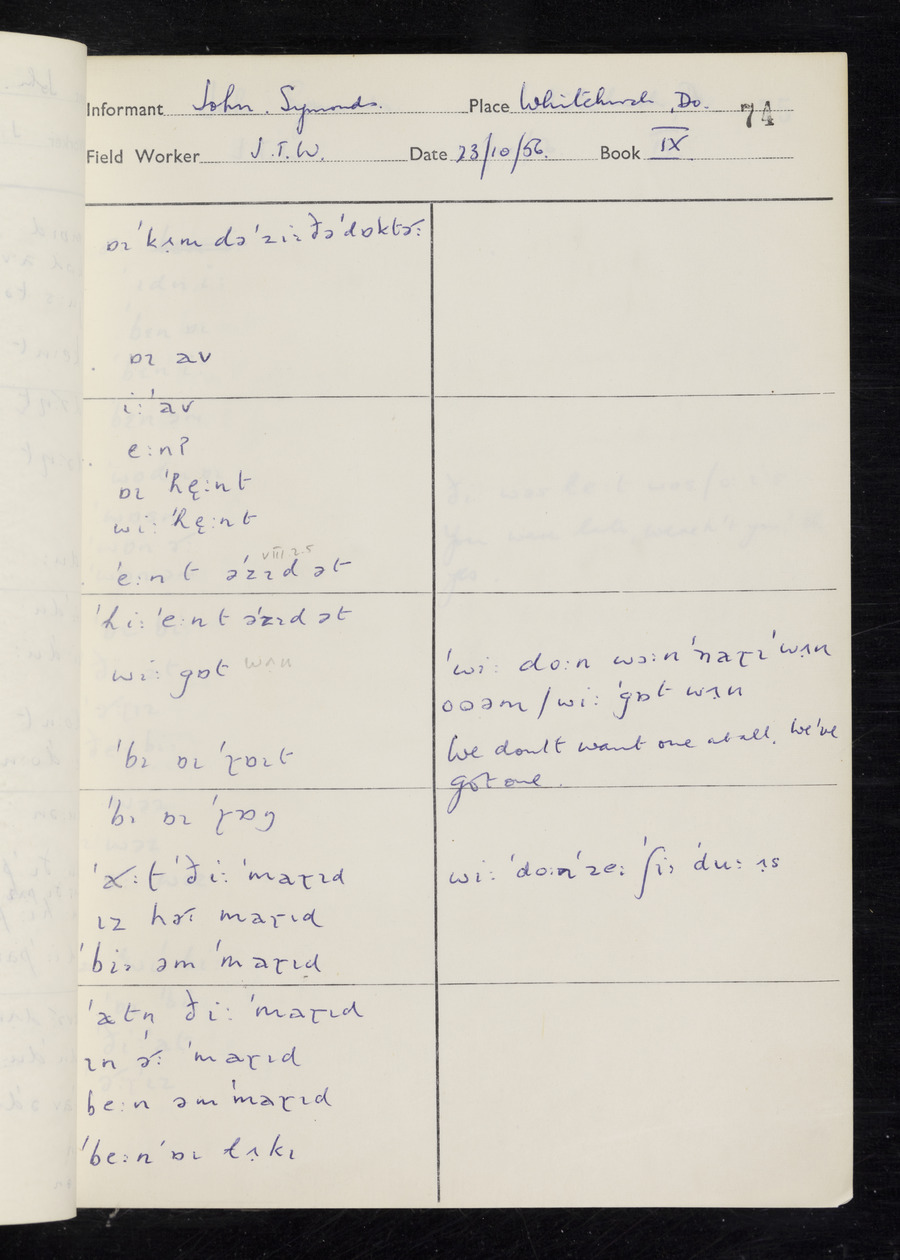 Informant John. Symonds. Place Whitchurch, Do. 74
Field Worker J.T.W. Date 23/10/56. Book IX
ɒɪ ˈkʌ̣m də ˈziː ðə ˈdɒktəʴː
ɒɪ av
iː ˈav
eːnʔ
ɒɪ ˈhę̈ːnt
wiː ˈhę̈ːnt
VIII 2.5
ˈeːnt əˈzɪd ət
ˈhiː ˈeːnt əˈzɪd ət
wiː gɒt wʌn
ˈbɪ ɒɪ ˈɽɒɪt
ˈbɪ ɒɪ ˈɽɒŋ
ˈæːt ˈðiː ˈmaɽɪd
ɪz həʴː maɽɪd
ˈbiː əm ˈmaɽɪd
ˈætn ðiː ˈmaɽɪd
ɪn əʴː ˈmaɽɪd
beːn əm ˈmaɽɪd
ˈbeːn ˈɒɪ lʌ̣kɪ
ˈwiː doːn wɔːn ˈnaɽɪ ˈwʌ̣n
ooəm / wiː ˈgɒt wʌ̣n
We don't want one at all. We've
got one.
wiː ˈdoːn ˈzeː ˈʃiː ˈduː ʌ̣s